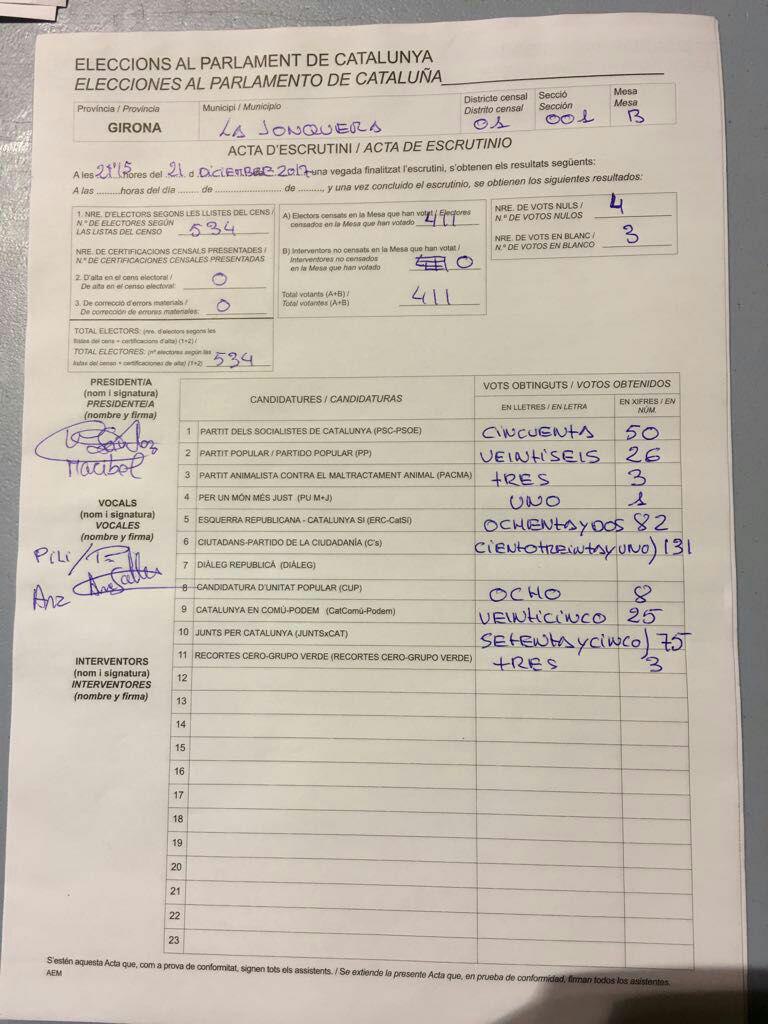 ELECCIONS AL PARLAMENT DE CATALUNYA
ELECCIONES AL PARLAMENTO DE CATALUÑA
Província / Provincia
GIRONA
Municipi / Municipio
LA JONQUERA
Districte censal
Distrito censal
01
Secció
Sección
001
Mesa
Mesa
B
ACTA D'ESCRUTINI / ACTA DE ESCRUTINIO
A les 21'15 hores del 21 d DICIEMBRE 2017 una vegada finalitzat l'escrutini, s'obtenen els resultats següents:
A las .........horas del día ....... de ........................... de ........, y una vez concluido el escrutinio, se obtienen los siguientes resultados:
1. NRE. D'ELECTORS SEGONS LES LLISTES DEL CENS /
N.º DE ELECTORES SEGÚN
LAS LISTAS DEL CENSO 534
NRE. DE CERTIFICACIONS CENSALS PRESENTADES /
N.º DE CERTIFICACIONES CENSALES PRESENTADAS
2. D'alta en el cens electoral /
De alta en el censo electoral: 0
3. De correcció d'errors materials /
De corrección de errores materiales: 0
TOTAL ELECTORS: (nre. d'electors segons les
llistes del cens + certificacions d'alta) (1+2) /
TOTAL ELECTORES: (nº electores según las
listas del censo + certificaciones de alta) (1+2) 534
A) Electors censats en la Mesa que han votat / Electores
censados en la Mesa que han votado 411
B) Interventors no censats en la Mesa que han votat /
Interventores no censados
en la Mesa que han votado 0
Total votants (A+B) /
Total votantes (A+B) 411
NRE. DE VOTS NULS /
N.º DE VOTOS NULOS 4
NRE. DE VOTS EN BLANC /
N.º DE VOTOS EN BLANCO 3
PRESIDENT/A
(nom i signatura)
PRESIDENTE/A
(nombre y firma)
Maribel
VOCALS
(nom i signatura)
VOCALES
(nombre y firma)
PILI
INTERVENTORS
(nom i signatura)
INTERVENTORES
(nombre y firma)
CANDIDATURES / CANDIDATURAS
VOTS OBTINGUTS / VOTOS OBTENIDOS
EN LLETRES / EN LETRA
EN XIFRES / EN NÚM.
1 PARTIT DELS SOCIALISTES DE CATALUNYA (PSC-PSOE) CINCUENTA 50
2 PARTIT POPULAR / PARTIDO POPULAR (PP) VEINTISEIS 26
3 PARTIT ANIMALISTA CONTRA EL MALTRACTAMENT ANIMAL (PACMA) TRES 3
4 PER UN MÓN MÉS JUST (PU M+J) UNO 1
5 ESQUERRA REPUBLICANA - CATALUNYA SI (ERC-CatSí) OCHENTA Y DOS 82
6 CIUTADANS-PARTIDO DE LA CIUDADANÍA (C's) CIENTO TREINTA Y UNO) 131
7 DIÀLEG REPUBLICÀ (DIÀLEG)
8 CANDIDATURA D'UNITAT POPULAR (CUP) OCHO 8
9 CATALUNYA EN COMÚ-PODEM (CatComú-Podem) VEINTICINCO 25
10 JUNTS PER CATALUNYA (JUNTSxCAT) SETENTA Y CINCO) 75
11 RECORTES CERO-GRUPO VERDE (RECORTES CERO-GRUPO VERDE) TRES 3
12
13
14
15
16
17
18
19
20
21
22
23
S'estén aquesta Acta que, com a prova de conformitat, signen tots els assistents. / Se extiende la presente Acta que, en prueba de conformidad, firman todos los asistentes.
AEM